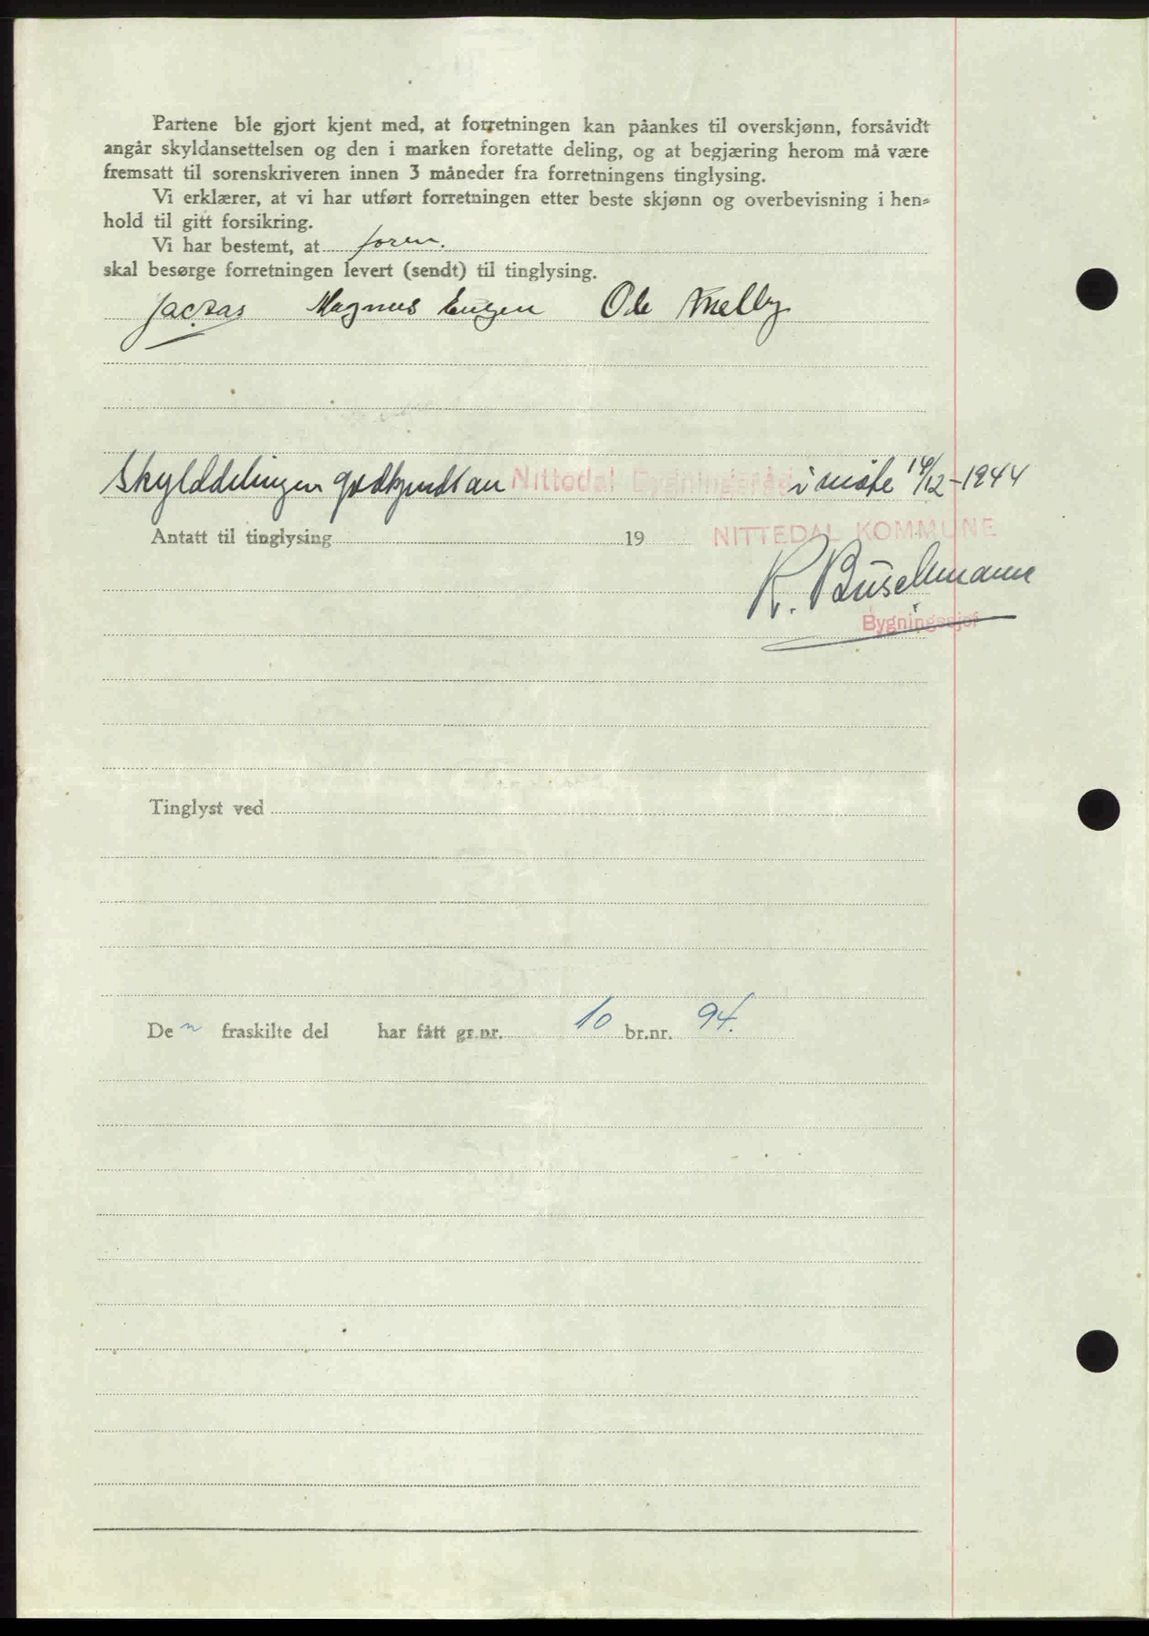 Partene ble gjort kjent med, at forretningen kan påankes til overskjønn, forsåvidt
angår skyldansettelsen og den i marken foretatte deling, og at begjæring herom må være
fremsatt til sorenskriveren innen 3 måneder fra forretningens tinglysing.
Vi erklærer, at vi har utført forretningen etter beste skjønn og overbevisning i hen-
hold til gitt forsikring.
Vi har bestemt, at foren.
skal besørge forretningen levert (sendt) til tinglysing.
Magnus Engen Ole Melby
Skylddelingen godkjendt av Nittedal Bygningsråd i møte 14/12-1944
Antatt til tinglysing 19
NITTEDAL KOMMUNE
R. Buschmann
Bygningssjef
Tinglyst ved
Den fraskilte del har fått gr.nr. 10 br.nr. 94.